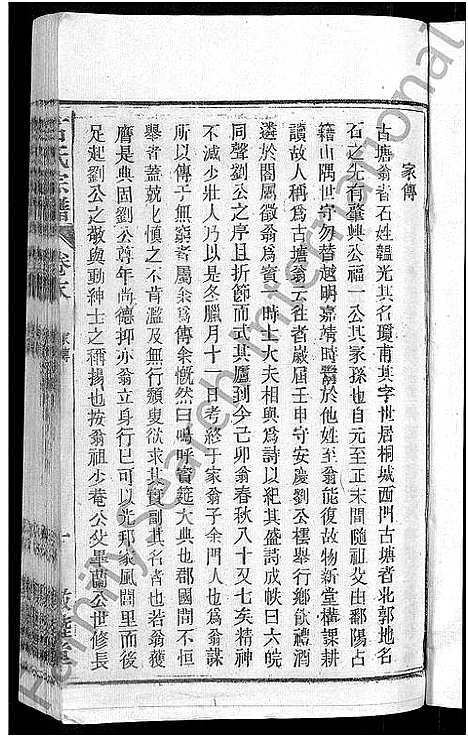 家傳
古塘翁者石姓韞光其名瓊甫其字世居桐城西門古塘者北郭地名
石之先有肇興公福一公其家孫也自元至正末間隨祖父由鄱陽占
籍山隅世守勿替越明嘉靖時鬻於他姓至翁能復故物新堂構課耕
讀故人稱為古塘翁云往者歲屆壬申守安慶劉公櫄舉行鄉飲禮酒
遴於闔屬徵翁為賓一時士大夫相與為詩以紀其盛詩成帙曰六皖
同聲劉公之序且折節而式其廬到今己卯翁春秋八十又七矣精神
不減少壯人乃以是冬臘月十一日考終于家翁子余門人也為翁謀
所以傳于無窮者屬余為傳余慨然曰嗚呼賓筵大典也郡國間不恒
舉者蓋兢兢慎之不肯濫及無行頹叟欲求其實副其名者也若翁獲
膺是典固劉公尊年尚德抑亦翁立身行己可以光邦家風閭里而後
足起劉公之敬與動紳士之稱揚也按翁祖少菴公父畢蘭公世修長
石氏宗譜
卷末
家傳
Family Search International